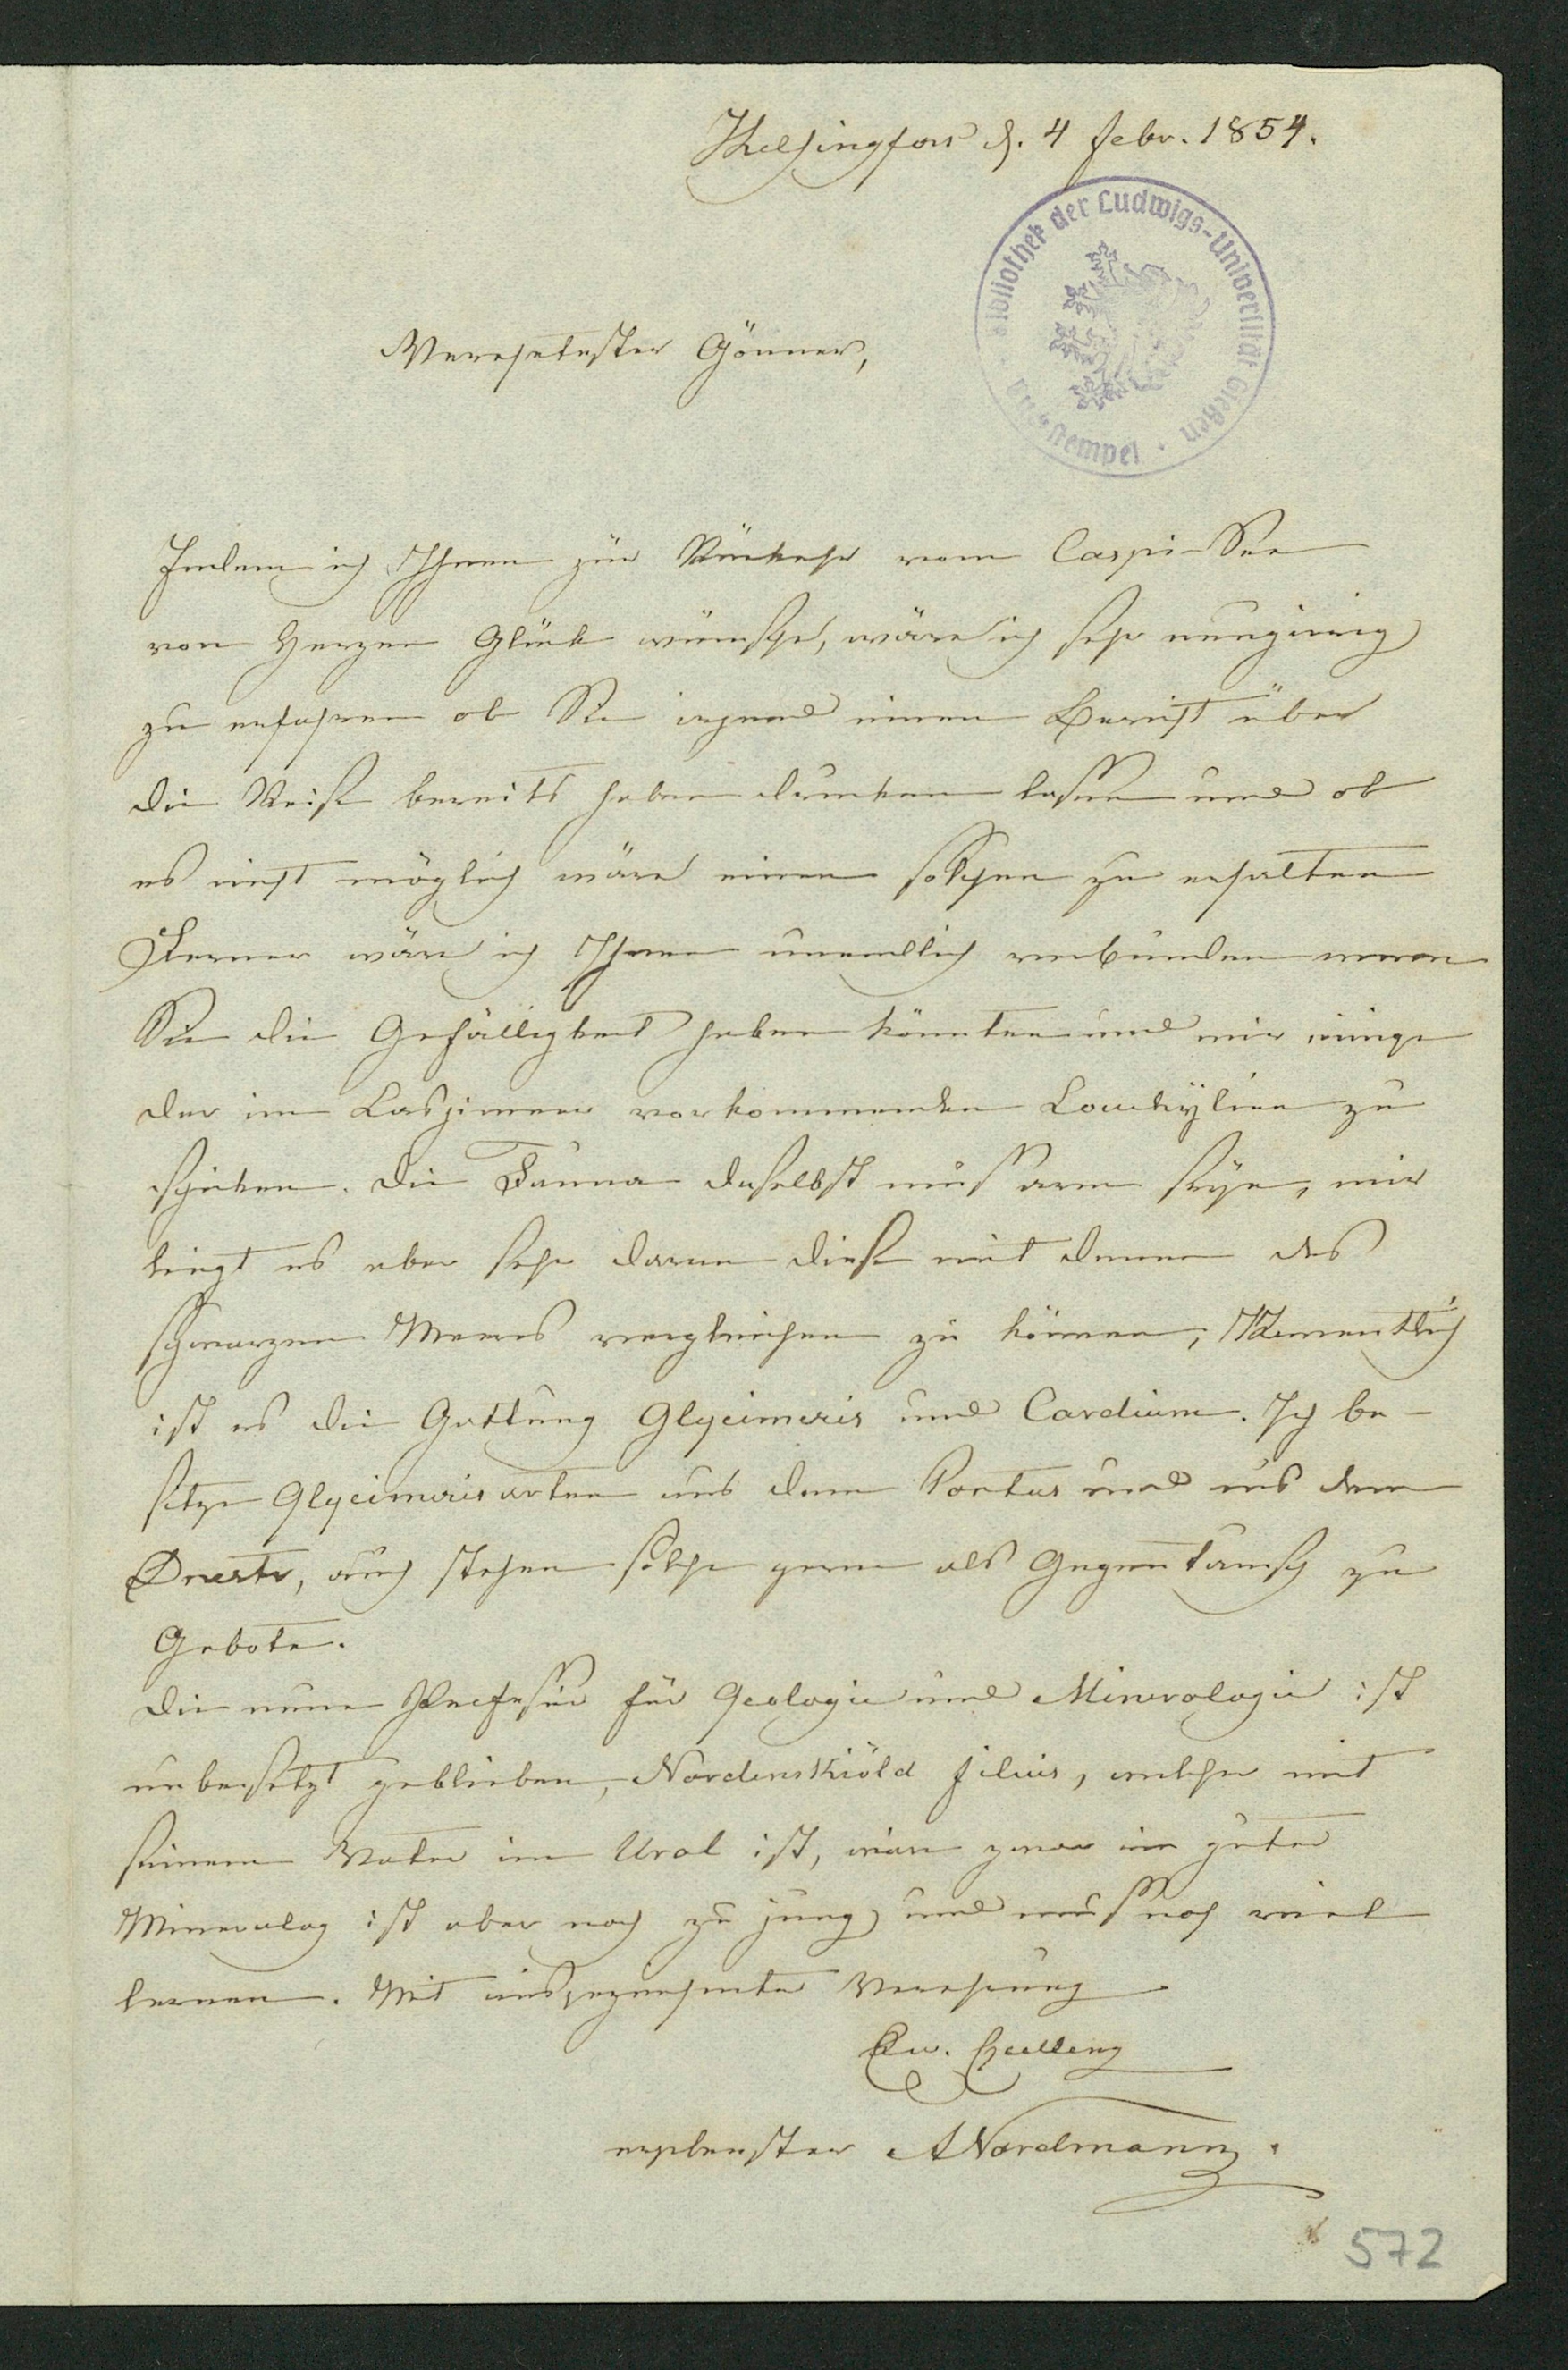 Helsingfors d. 4 Febr. 1854.
Bibliothek der Ludwigs-Universität Gießen
stempel
Verehrtester Gönner,
Indem ich Ihnen zur Rückkehr vom Caspi-See
von Herzen Glück wünsche, wäre ich sehr neugierig
zu erfahren ob Sie irgend einen Bericht über
die Reise bereits haben drucken lassen und ob
es nicht möglich wäre einen solchen zu erhalten
Ferner wäre ich Ihnen unendlich verbunden wenn
Sie die Gefälligkeit haben könnten und mir einige
der im Caspimeer vorkommenden Conchylien zu
schicken. Die Fauna daselbst muß arm seyn, mir
liegt es aber sehr daran diese mit denen des
schwarzen Meeres vergleichen zu können, Namentlich
ist es die Gattung Glycimeris und Cardium. Ich be-
sitze Glycimerisarten aus dem Pontus und aus dem
Dnestr, auch stehen solche gern als Gegentausch zu
Gebote.
Die neue Professur für Geologie und Minerologie ist
unbesetzt geblieben, Nordenskiöld filius, welcher mit
seinem Vater im Ural ist, wäre zwar ein guter
Mineralog ist aber noch zu jung und muß noch viel
lernen. Mit ausgezeichneter Verehrung
Ew. Excellenz
ergebenster ANordmann.
572